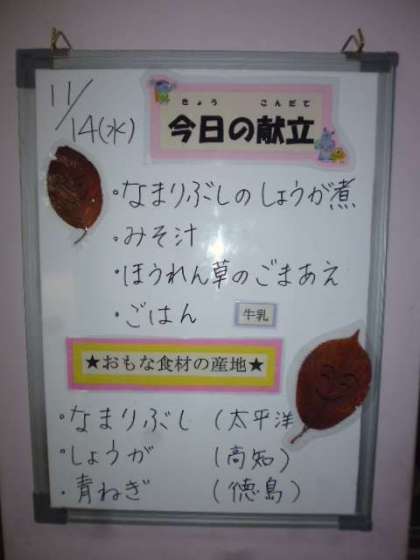 11/14(水)
きょう こんだて
今日の献立
・なまりぶしのしょうが煮
・みそ汁
・ほうれん草のごまあえ
・ごはん 牛乳
★おもな食材の産地★
・なまりぶし (太平洋
・しょうが (高知)
・青ねぎ (徳島)